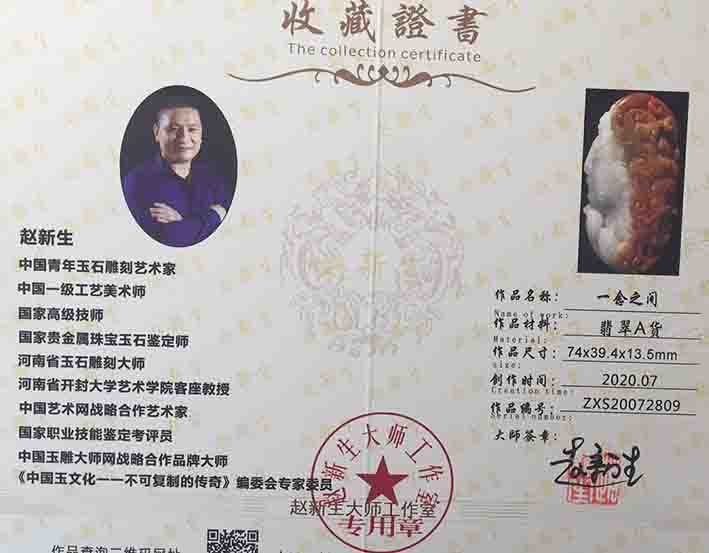 收藏證書
The collection certificate
赵新生
中国青年玉石雕刻艺术家
中国一级工艺美术师
国家高级技师
国家贵金属珠宝玉石鉴定师
河南省玉石雕刻大师
河南省开封大学艺术学院客座教授
中国艺术网战略合作艺术家
国家职业技能鉴定考评员
中国玉雕大师网战略合作品牌大师
《中国玉文化一一不可复制的传奇》编委会专家委员
作品名称： 一念之间
Name of work:
作品材料： 翡翠A货
Material:
作品尺寸： 74x39.4x13.5mm
size:
创作时间： 2020.07
Creation time:
作品编号： ZXS20072809
Serial number:
大师签章：
赵新生
赵新生大师工作室
专用章
赵新生大师工作室
作品查询二维码网址